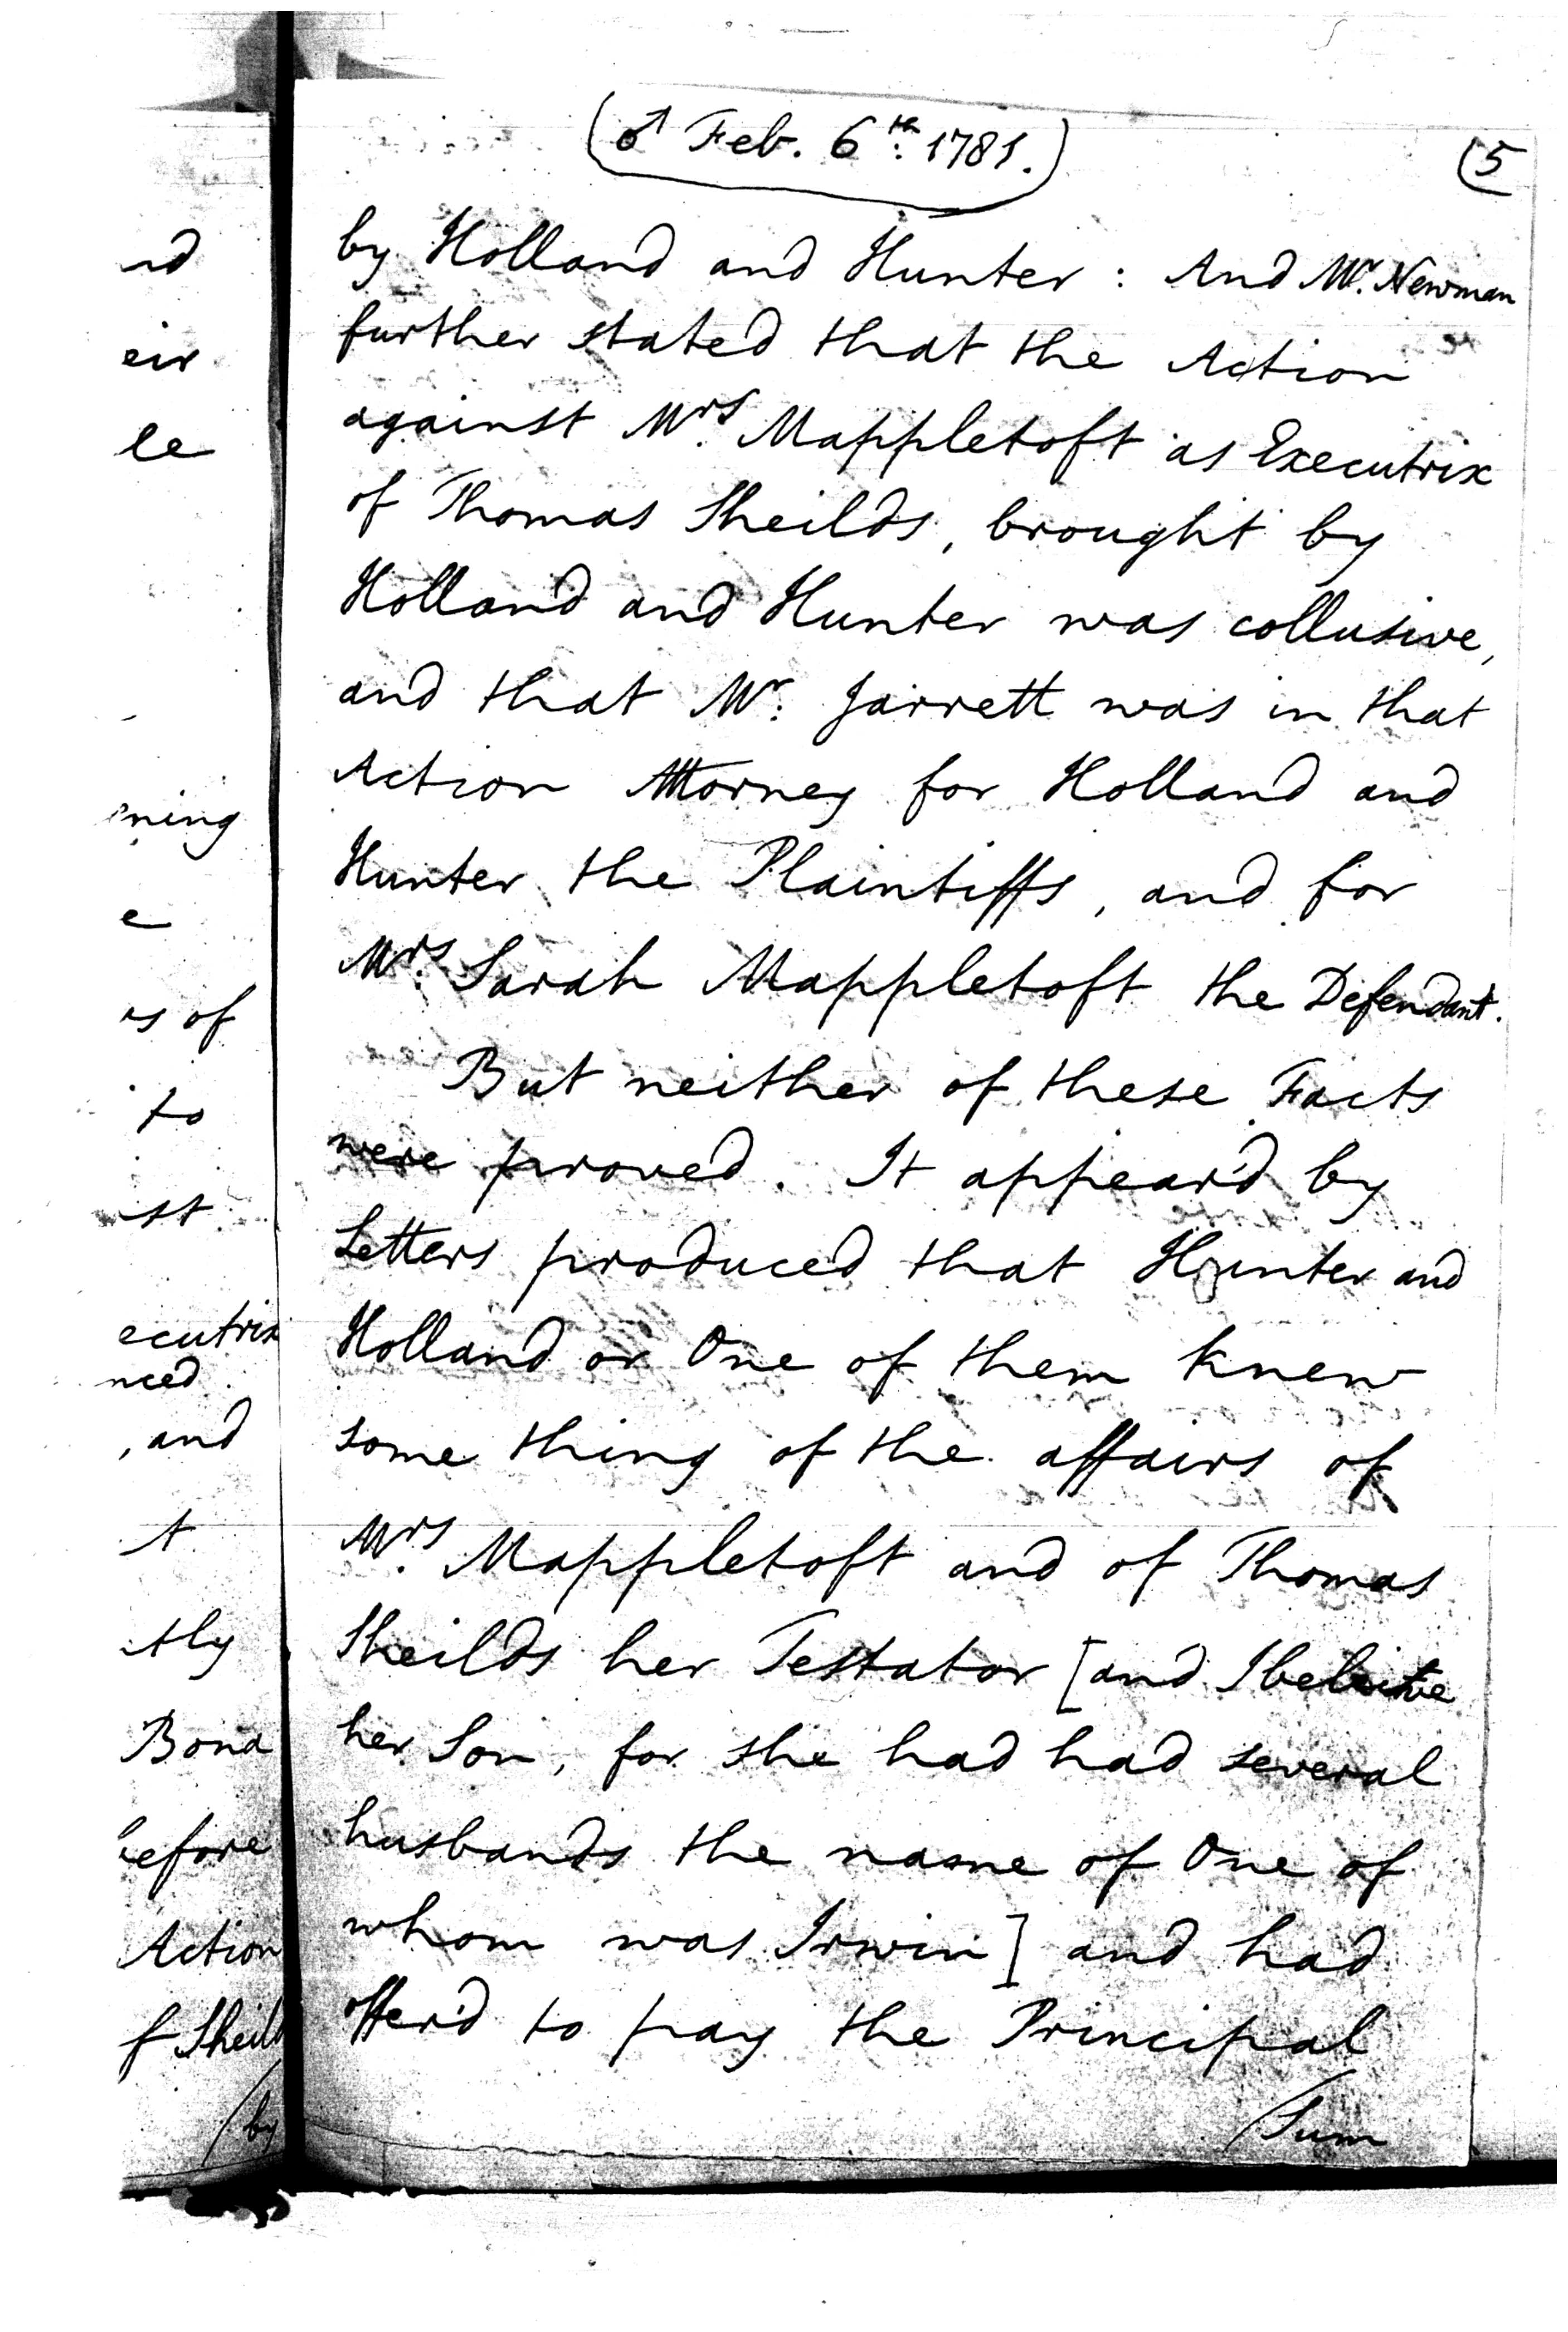 ♂ Feb. 6th. 1781.
(5
by Holland and Hunter : And Mr. Newman
further stated that the Action
against Mrs. Mappletoft as Executrix
of Thomas Sheilds, brought by
Holland and Hunter was collusive,
and that Mr. Jarrett was in that
Action Attorney for Holland and
Hunter the Plaintiffs, and for
Mrs. Sarah Mappletoft the Defendant.
But neither of these Facts
were proved. It appear'd by
Letters produced that Hunter and
Holland or One of them knew
some thing of the affairs of
Mrs. Mappletoft and of Thomas
Sheilds her Testator [and I beleive
her Son, for she had had several
husbands the name of One of
whom was Irwin] and had
offer'd to pay the Principal
/Sum
nd
eir
le
ning
e
rs of
to
st
ecutrix
nced
, and
t
tly
Bond
before
Action
f Sheild
/by